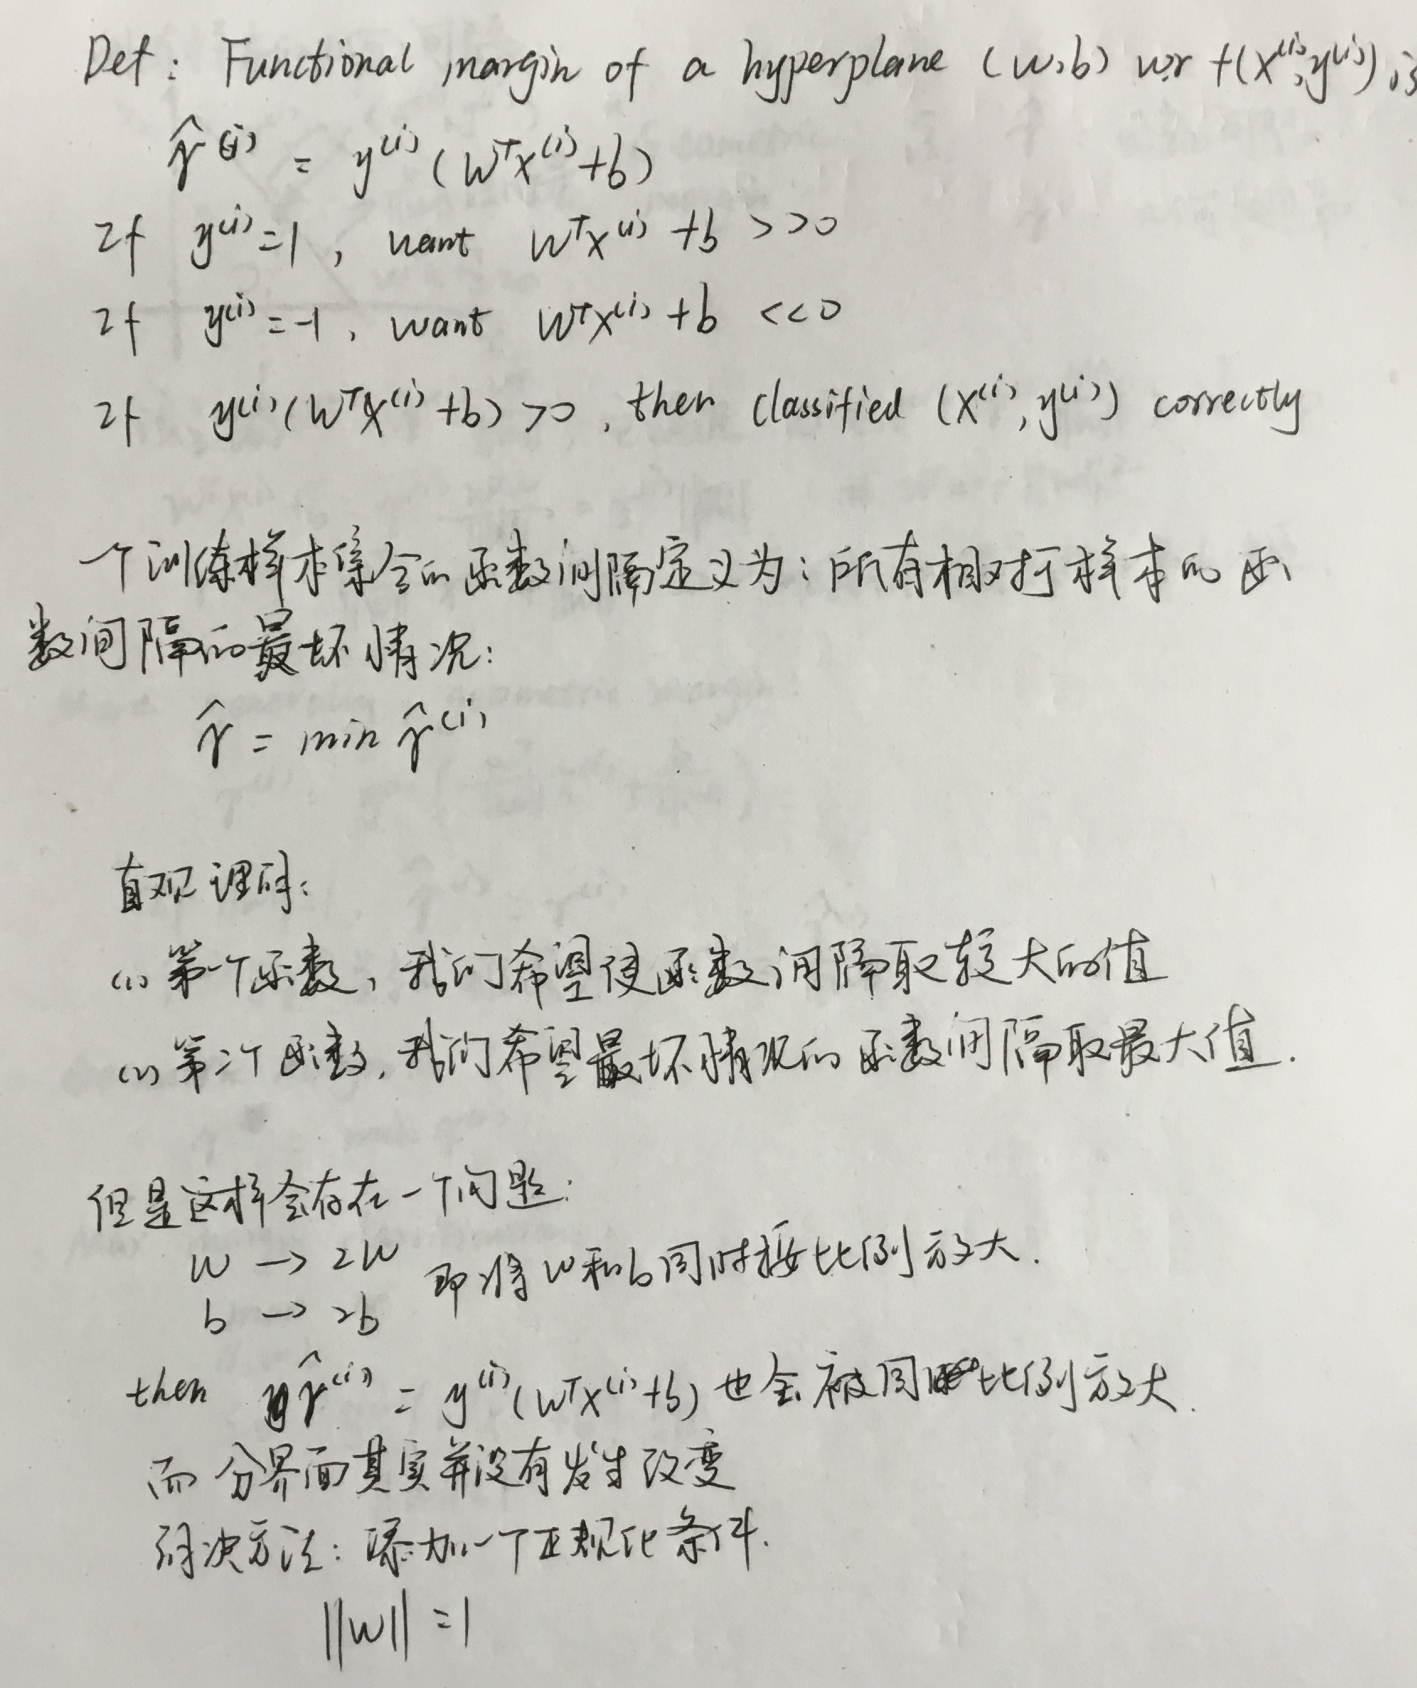 Def: Functional margin of a hyperplane (w,b) wr t(x⁽ⁱ⁾,y⁽ⁱ⁾) is
γ̂⁽ⁱ⁾ = y⁽ⁱ⁾(wᵀx⁽ⁱ⁾+b)
If y⁽ⁱ⁾=1, want wᵀx⁽ⁱ⁾+b >>0
If y⁽ⁱ⁾=-1, want wᵀx⁽ⁱ⁾+b <<0
If y⁽ⁱ⁾(wᵀx⁽ⁱ⁾+b)>0, then classified (x⁽ⁱ⁾,y⁽ⁱ⁾) correctly
一个训练样本集合的函数间隔定义为:所有相对于样本的函
数间隔的最坏情况:
γ̂ = min γ̂⁽ⁱ⁾
直观理解:
(1) 第一个函数,我们希望使函数间隔取较大的值
(2) 第二个函数,我们希望最坏情况的函数间隔取最大值.
但是这样会存在一个问题:
w → 2w 即将w和b同时按比例放大.
b → 2b
then γ̂⁽ⁱ⁾ = y⁽ⁱ⁾(wᵀx⁽ⁱ⁾+b) 也会被同比例放大.
而分界面其实并没有发生改变
解决方法:添加一个正规化条件.
||w|| =1